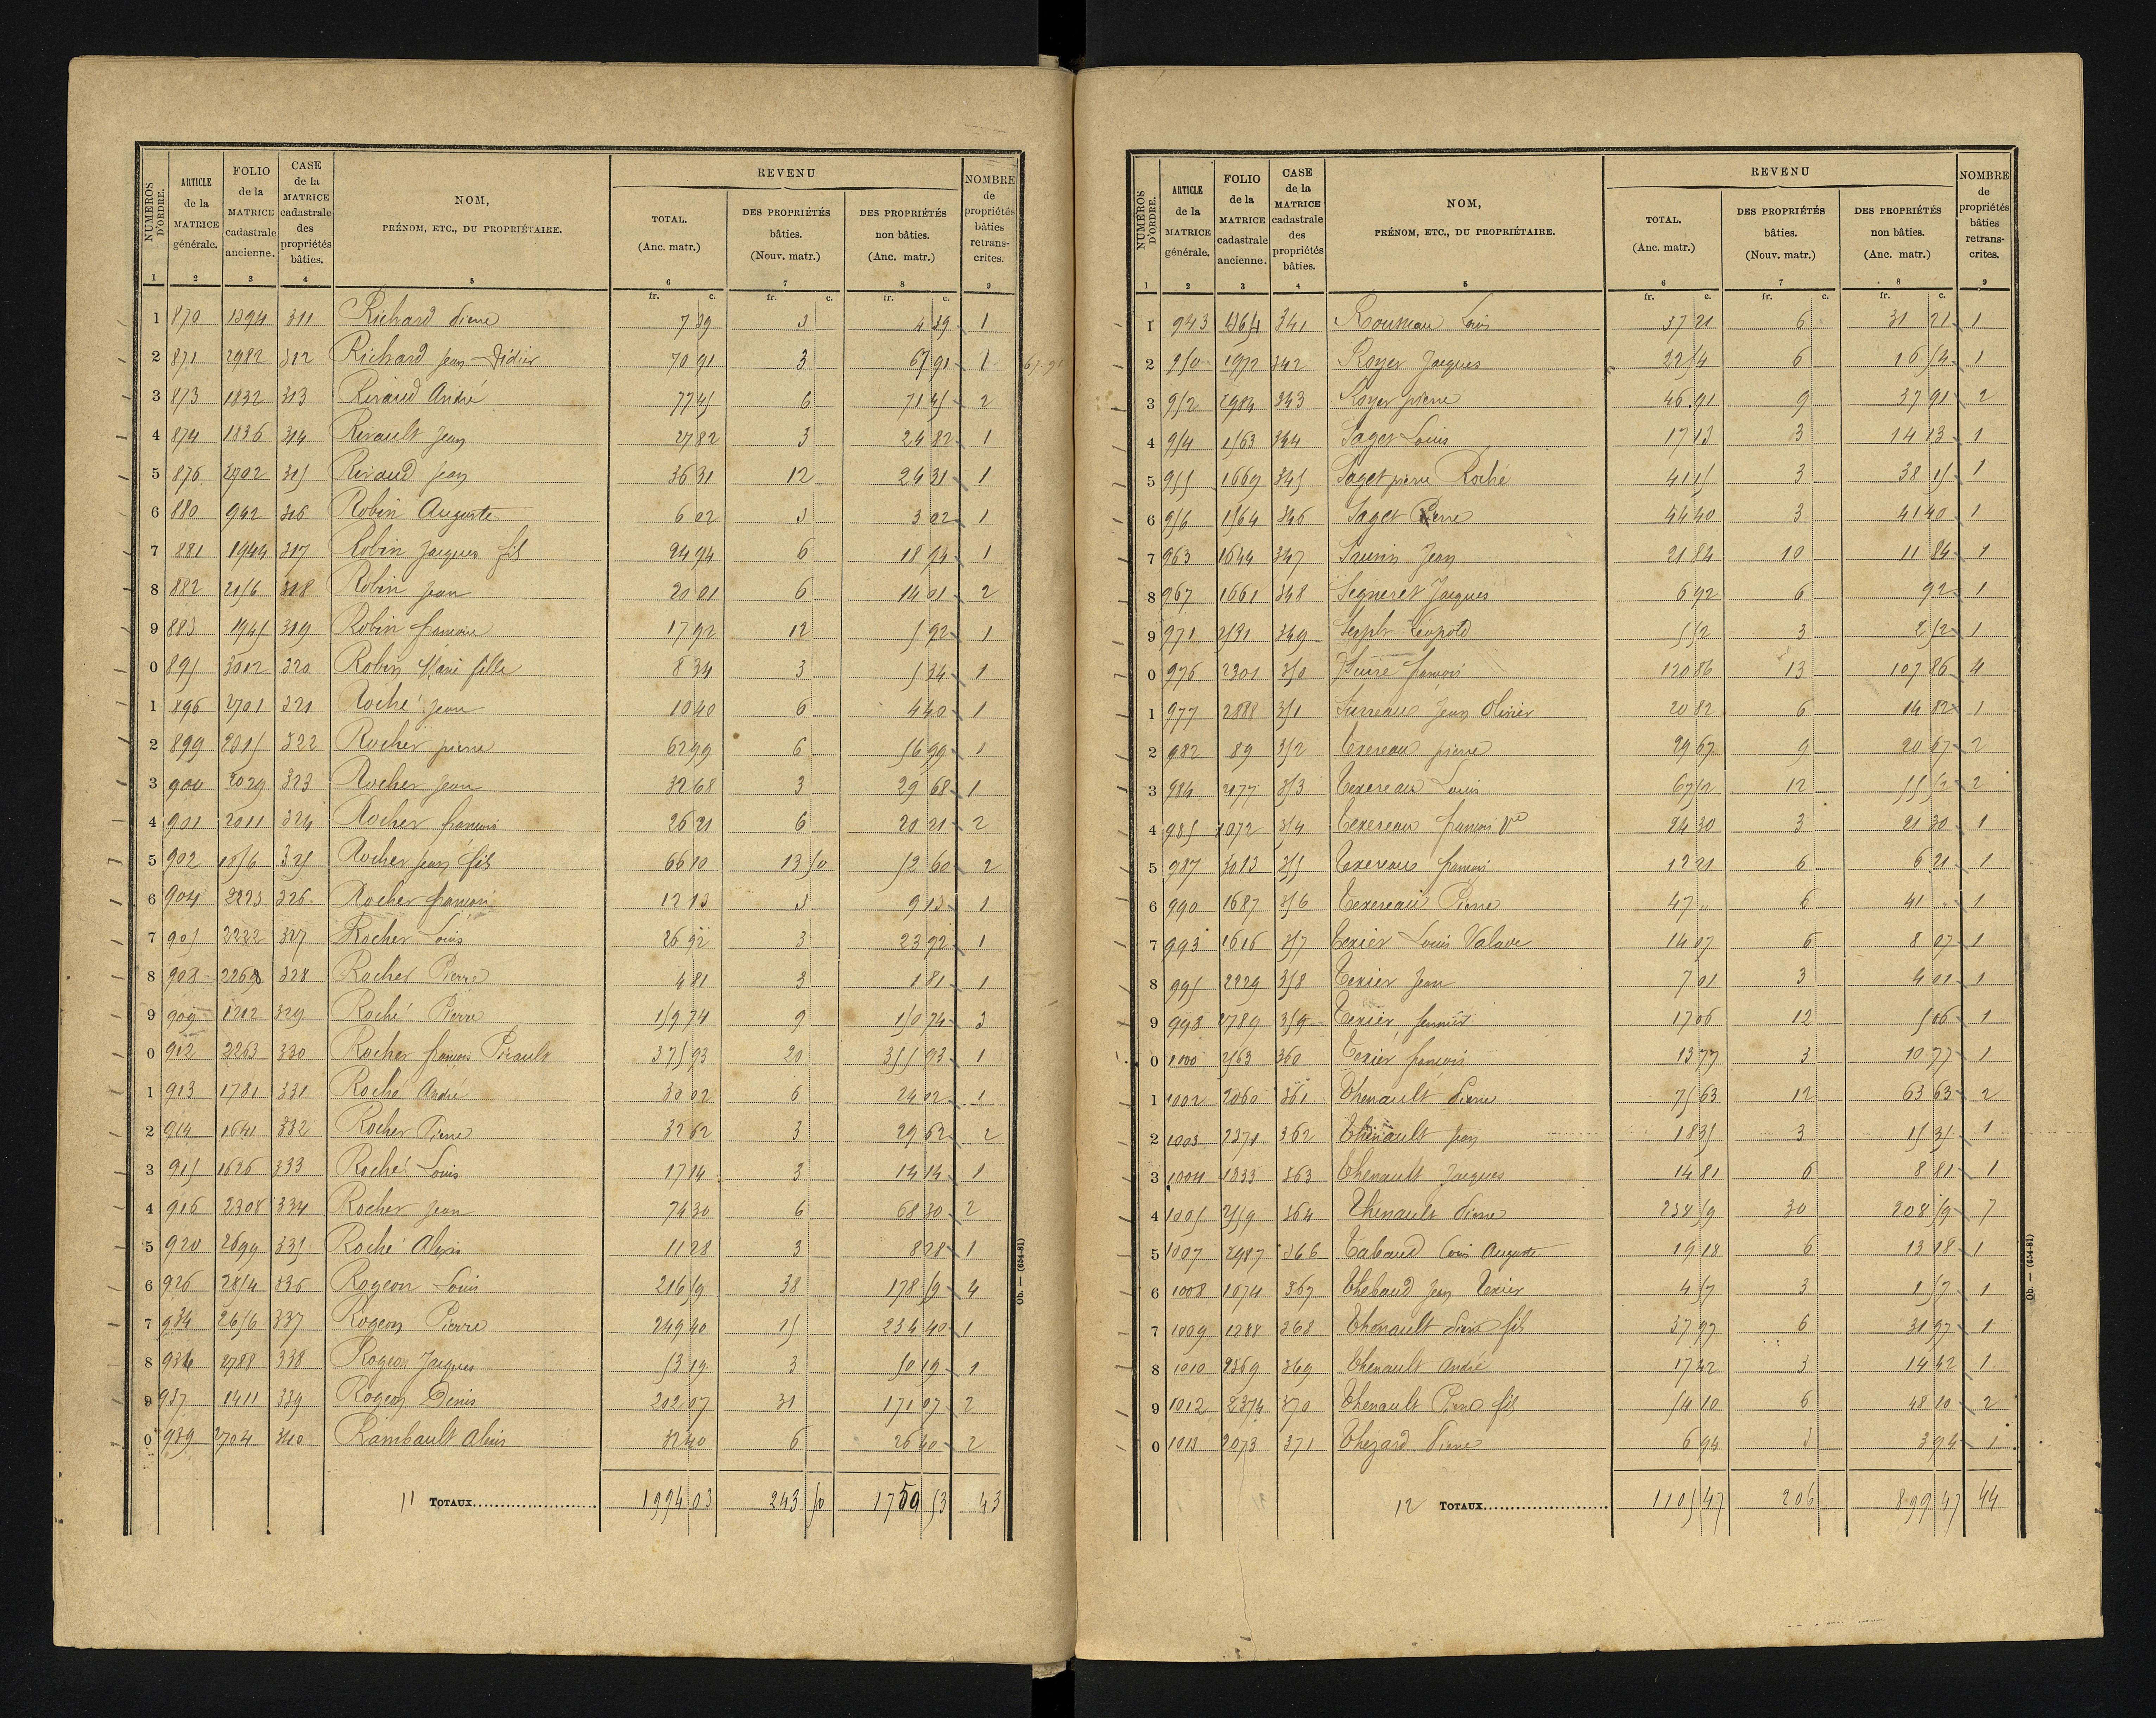 NUMÉROS D'ORDRE. | ARTICLE de la MATRICE générale. | FOLIO de la MATRICE cadastrale ancienne. | CASE de la MATRICE cadastrale des propriétés bâties. | NOM, PRÉNOM, ETC., DU PROPRIÉTAIRE. | REVENU | NOMBRE de propriétés bâties retrans-crites.
TOTAL. (Anc. matr.) | DES PROPRIÉTÉS bâties. (Nouv. matr.) | DES PROPRIÉTÉS non bâties. (Anc. matr.)
1 | 2 | 3 | 4 | 5 | 6 | 7 | 8 | 9
fr. c. | fr. c. | fr. c.
1 870 1394 311 Richard Pierre 7 39 3 4 39 1
2 871 2982 312 Richard Jean Didier 70 91 3 67 91 1
3 873 1832 313 Rivaud André 77 45 6 71 45 2
4 874 1836 314 Rivault Jean 27 82 3 24 82 1
5 876 2702 315 Rivaud Jean 36 31 12 24 31 1
6 880 942 316 Robin Auguste 6 02 3 3 02 1
7 881 1944 317 Robin Jacques fils 24 94 6 18 94 1
8 882 2156 318 Robin Jean 20 01 6 14 01 2
9 883 1945 319 Robin françois 17 92 12 5 92 1
0 895 3002 320 Robin Marie fille 8 34 3 5 34 1
1 896 2701 321 Roché Jean 10 40 6 4 40 1
2 899 2015 322 Rocher pierre 62 99 6 56 99 1
3 900 2029 323 Rocher Jean 32 68 3 29 68 1
4 901 2011 324 Rocher françois 26 21 6 20 21 2
5 902 1856 325 Rocher Jean fils 66 10 13 50 52 60 2
6 904 2223 326 Rocher françois 12 13 3 9 13 1
7 905 2222 327 Rocher Louis 26 92 3 23 92 1
8 908 2268 328 Rocher Pierre 4 81 3 1 81 1
9 909 1202 329 Roché Pierre 159 74 9 150 74 3
0 912 2263 330 Rocher françois Pirault 375 93 20 355 93 1
1 913 1781 331 Roché André 30 02 6 24 02 1
2 914 1641 332 Rocher Pierre 32 62 3 29 62 2
3 915 1626 333 Roché Louis 17 14 3 14 14 1
4 916 2308 334 Rocher Jean 74 30 6 68 30 2
5 920 2699 335 Roché Alexis 11 28 3 8 28 1
6 926 2854 336 Rogeon Louis 216 59 38 178 59 4
7 934 2656 337 Rogeon Pierre 249 40 15 234 40 1
8 936 2788 338 Rogeon Jacques 53 19 3 50 19 1
9 937 1411 339 Rogeon Denis 202 07 31 171 07 2
0 939 2704 340 Rambault Alexis 32 40 6 26 40 2
11 TOTAUX 1994 03 243 50 1750 53 43
Ob. — (654-81)
67.91
NUMÉROS D'ORDRE. | ARTICLE de la MATRICE générale. | FOLIO de la MATRICE cadastrale ancienne. | CASE de la MATRICE cadastrale des propriétés bâties. | NOM, PRÉNOM, ETC., DU PROPRIÉTAIRE. | REVENU | NOMBRE de propriétés bâties retrans-crites.
TOTAL. (Anc. matr.) | DES PROPRIÉTÉS bâties. (Nouv. matr.) | DES PROPRIÉTÉS non bâties. (Anc. matr.)
1 | 2 | 3 | 4 | 5 | 6 | 7 | 8 | 9
fr. c. | fr. c. | fr. c.
1 943 341 Rousseau Louis 37 21 6 31 21 1
2 950 1972 342 Royer Jacques 22 54 6 16 54 1
3 952 2984 343 Royer pierre 46 91 9 37 91 2
4 954 1563 344 Saget Louis 17 13 3 14 13 1
5 955 1669 345 Saget pierre Roché 41 15 3 38 15 1
6 956 1564 346 Saget Pierre 44 40 3 41 40 1
7 963 1644 347 Saurin Jean 21 84 10 11 84 1
8 967 1661 348 Segneret Jacques 6 92 6 92 1
9 971 2531 349 Léopold 5 52 3 2 52 1
0 976 2301 350 Suire françois 120 86 13 107 86 4
1 977 2888 351 Surreaux Jean Olivier 20 82 6 14 82 1
2 982 89 352 Texereau pierre 29 67 9 20 67 2
3 984 2177 353 Texereau Louis 67 52 12 55 52 2
4 985 1072 354 Texereau françois Ve 24 30 3 21 30 1
5 987 3013 355 Texereau françois 12 21 6 6 21 1
6 990 1687 356 Texereau Pierre 47 " 6 41 " 1
7 993 1616 357 Texier Louis Valade 14 07 6 8 07 1
8 995 2229 358 Texier Jean 7 01 3 4 01 1
9 998 2789 359 Texier 17 06 12 5 06 1
0 1000 2563 360 Texier françois 13 77 3 10 77 1
1 1002 2060 361 Thenault Pierre 75 63 12 63 63 2
2 1003 2371 362 Thenault Jean 18 35 3 15 35 1
3 1004 1833 363 Thenault Jacques 14 81 6 8 81 1
4 1005 2559 364 Thenault Pierre 238 59 30 208 59 7
5 1007 2987 366 Tabaud Louis Auguste 19 18 6 13 18 1
6 1008 1074 367 Thebaud Jean Texier 4 57 3 1 57 1
7 1009 1288 368 Thenault Pierre fils 37 97 6 31 97 1
8 1010 2369 369 Thenault André 17 42 3 14 42 1
9 1012 2374 370 Thenault Pierre fils 54 10 6 48 10 2
0 1013 2073 371 Thezard Pierre 6 94 3 3 94 1
12 TOTAUX 1105 47 206 899 47 44
Ob. — (654-81)